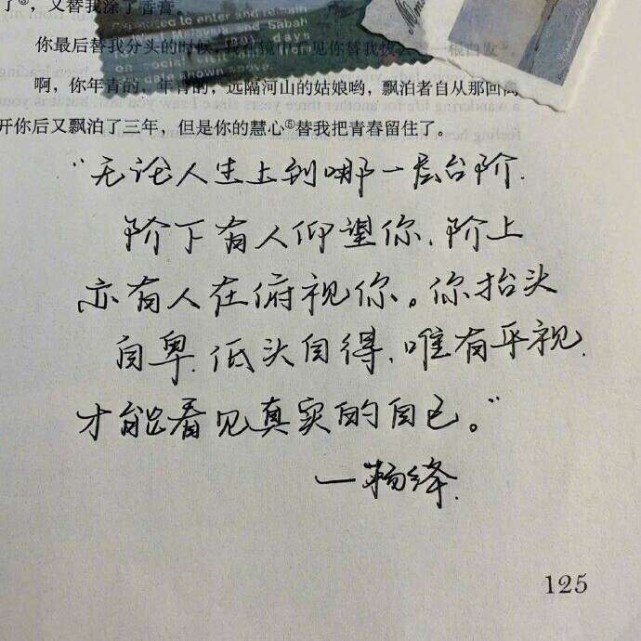 了⑤，又替我涂了香膏。
posed to enter and remain
Sabah
days
on social
down
你最后替我分头的时候，我在镜中看见你替我拔
啊，你年青的，年青的，远隔河山的姑娘哟，飘泊者自从那回离
开你后又飘泊了三年，但是你的慧心⑥替我把青春留住了。
"无论人生上到哪一层台阶.
阶下有人仰望你、阶上
亦有人在俯视你。你抬头
自卑.低头自得、唯有平视.
才能看见真实的自己。"
一杨绛.
125